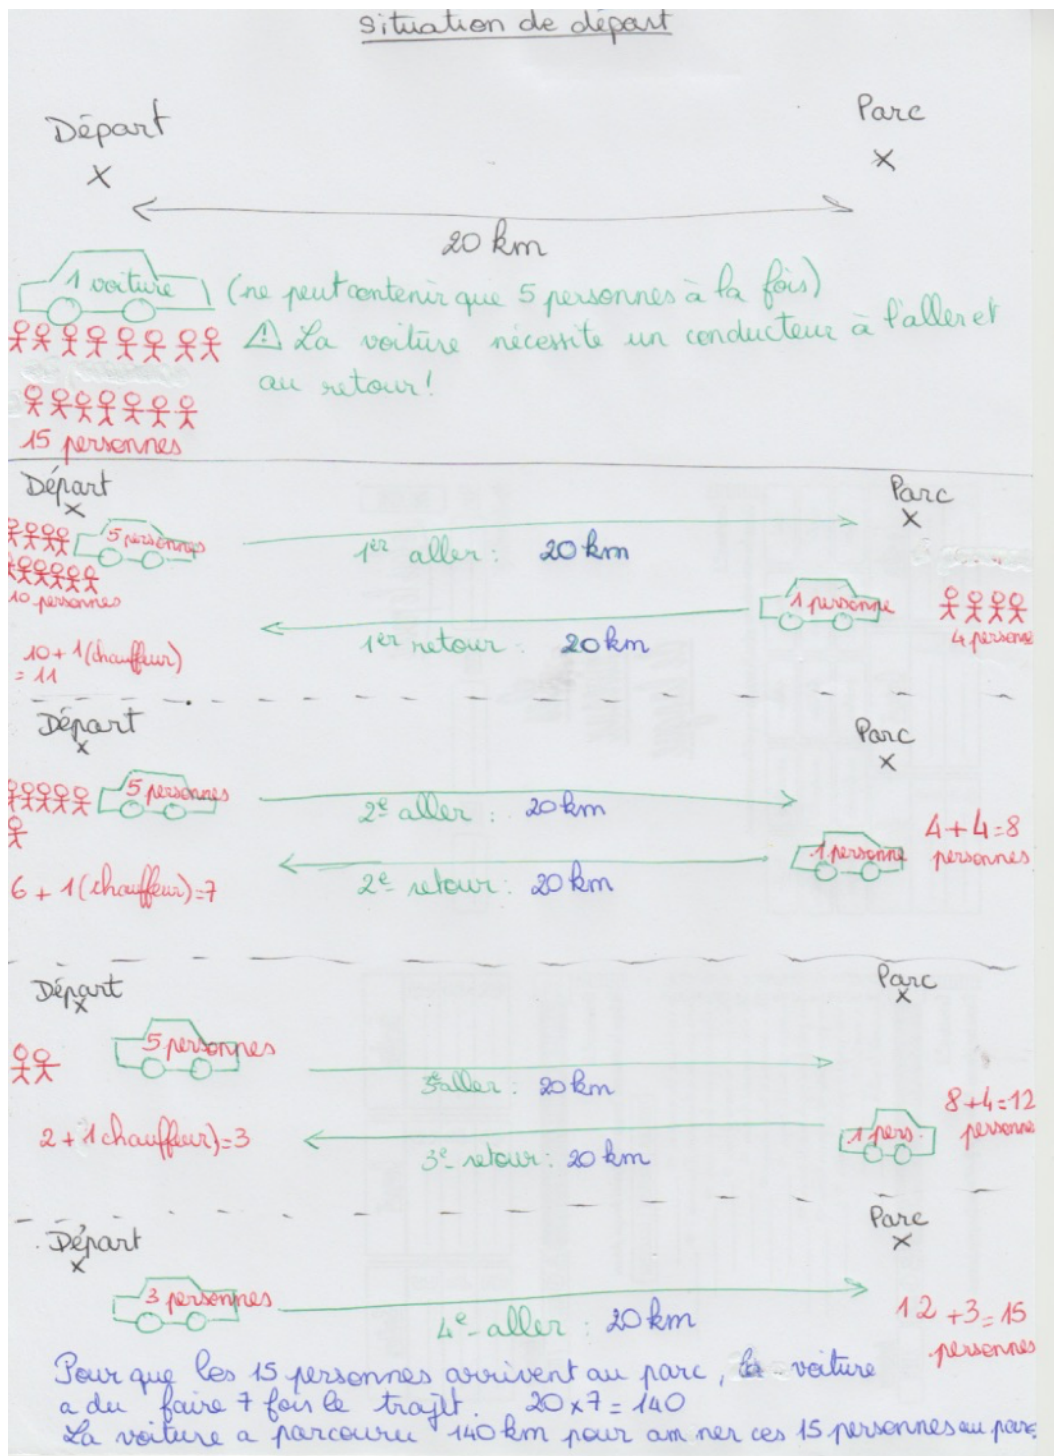 Situation de départ
Départ
Parc
X
X
20 km
1 voiture (ne peut contenir que 5 personnes à la fois)
⚠ La voiture nécessite un conducteur à l'aller et
au retour!
15 personnes
Départ
Parc
X
X
5 personnes
1er aller : 20 km
10 personnes
1 personne
1er retour : 20 km
4 personne
10 + 1 (chauffeur)
= 11
Départ
Parc
X
X
5 personnes
2e aller : 20 km
4+4=8
personnes
1 personne
2e retour : 20 km
6 + 1 (chauffeur)=7
Départ
Parc
X
X
5 personnes
3e aller : 20 km
8+4=12
personne
2 + 1 chauffeur)=3
1 pers.
3e retour : 20 km
Départ
Parc
X
X
3 personnes
4e aller : 20 km
12 +3=15
personnes
Pour que les 15 personnes arrivent au parc, la voiture
a du faire 7 fois le trajet. 20x7=140
La voiture a parcouru 140 km pour am ner ces 15 personnes au parc